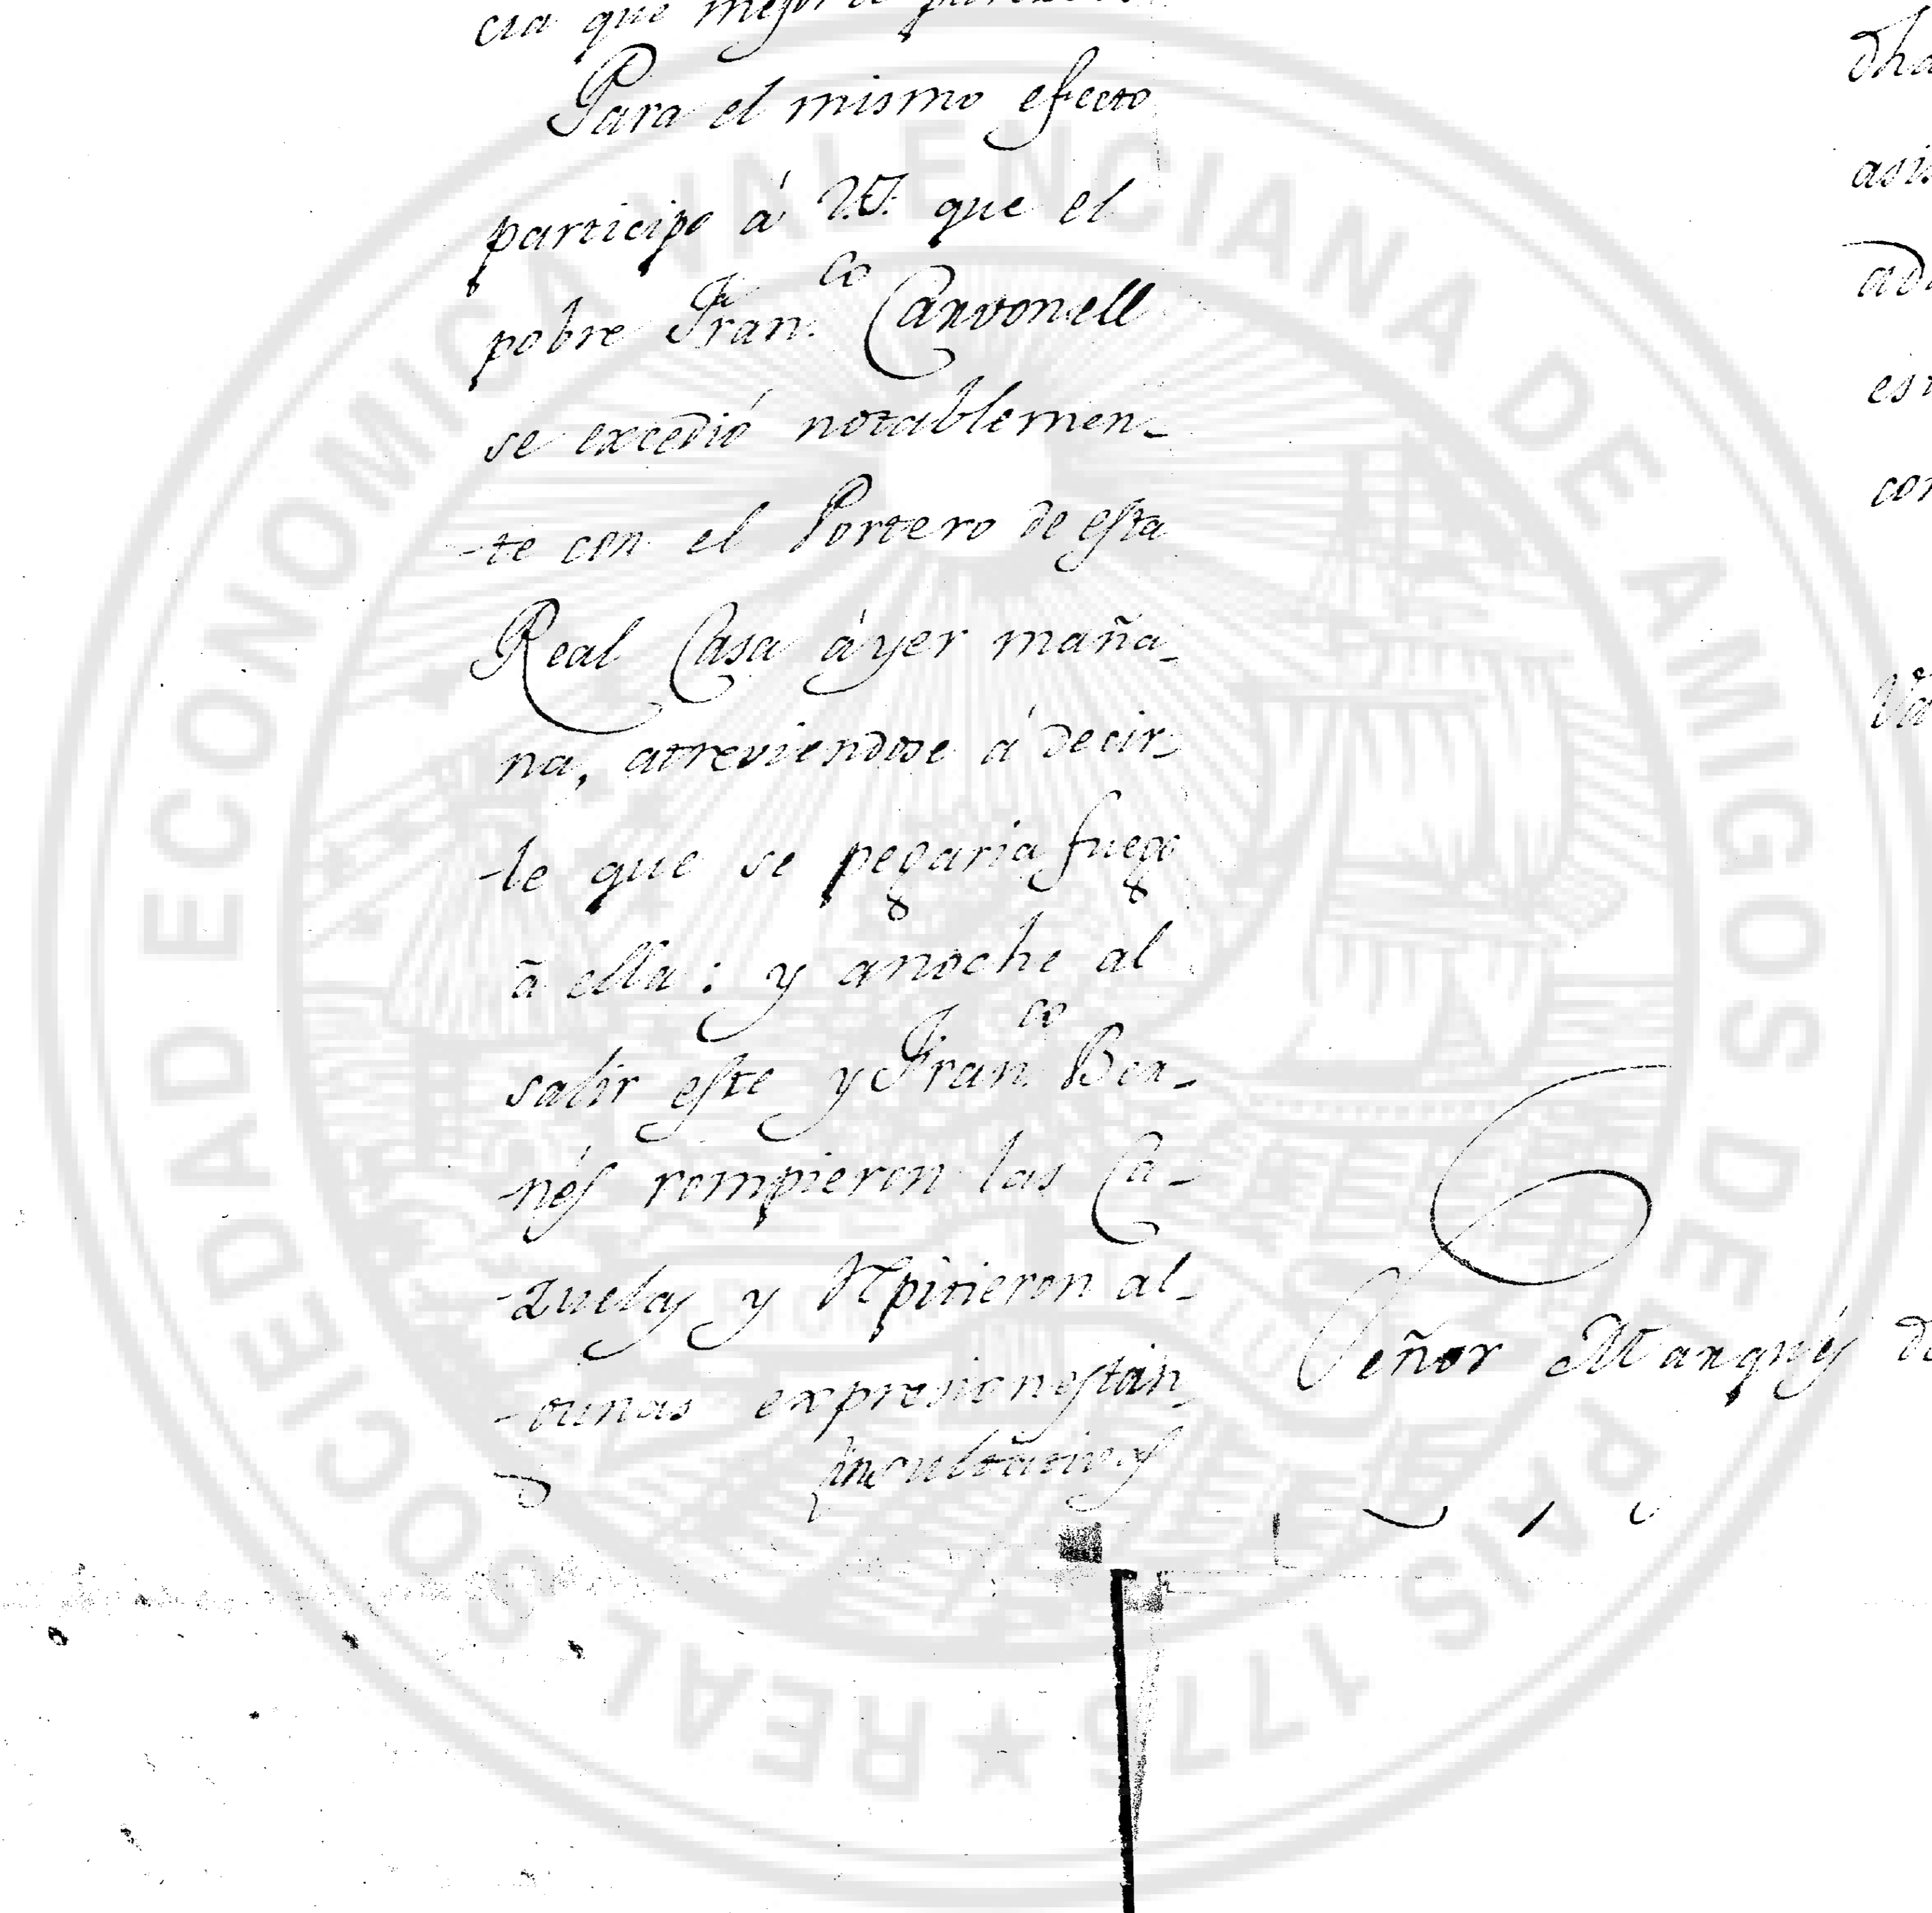 cia que mejor le
Para el mismo efecto
participo á V.S. que el
pobre Fran.co Carvonell
se excedió notablemen-
-te con el Portero de esta
Real Casa áyer maña-
na, atreviendose á decir-
-le que se pegaria fuego
ā ella: y anoche al
salir este y Fran.co Bea-
-nés rompieron las Ca-
-zuelas y repitieron al-
-gunas expresiones tan
insultativas
Dha
Señor Marqués de
REAL SOCIEDAD ECONOMICA VALENCIANA DE AMIGOS DEL PAIS 1776